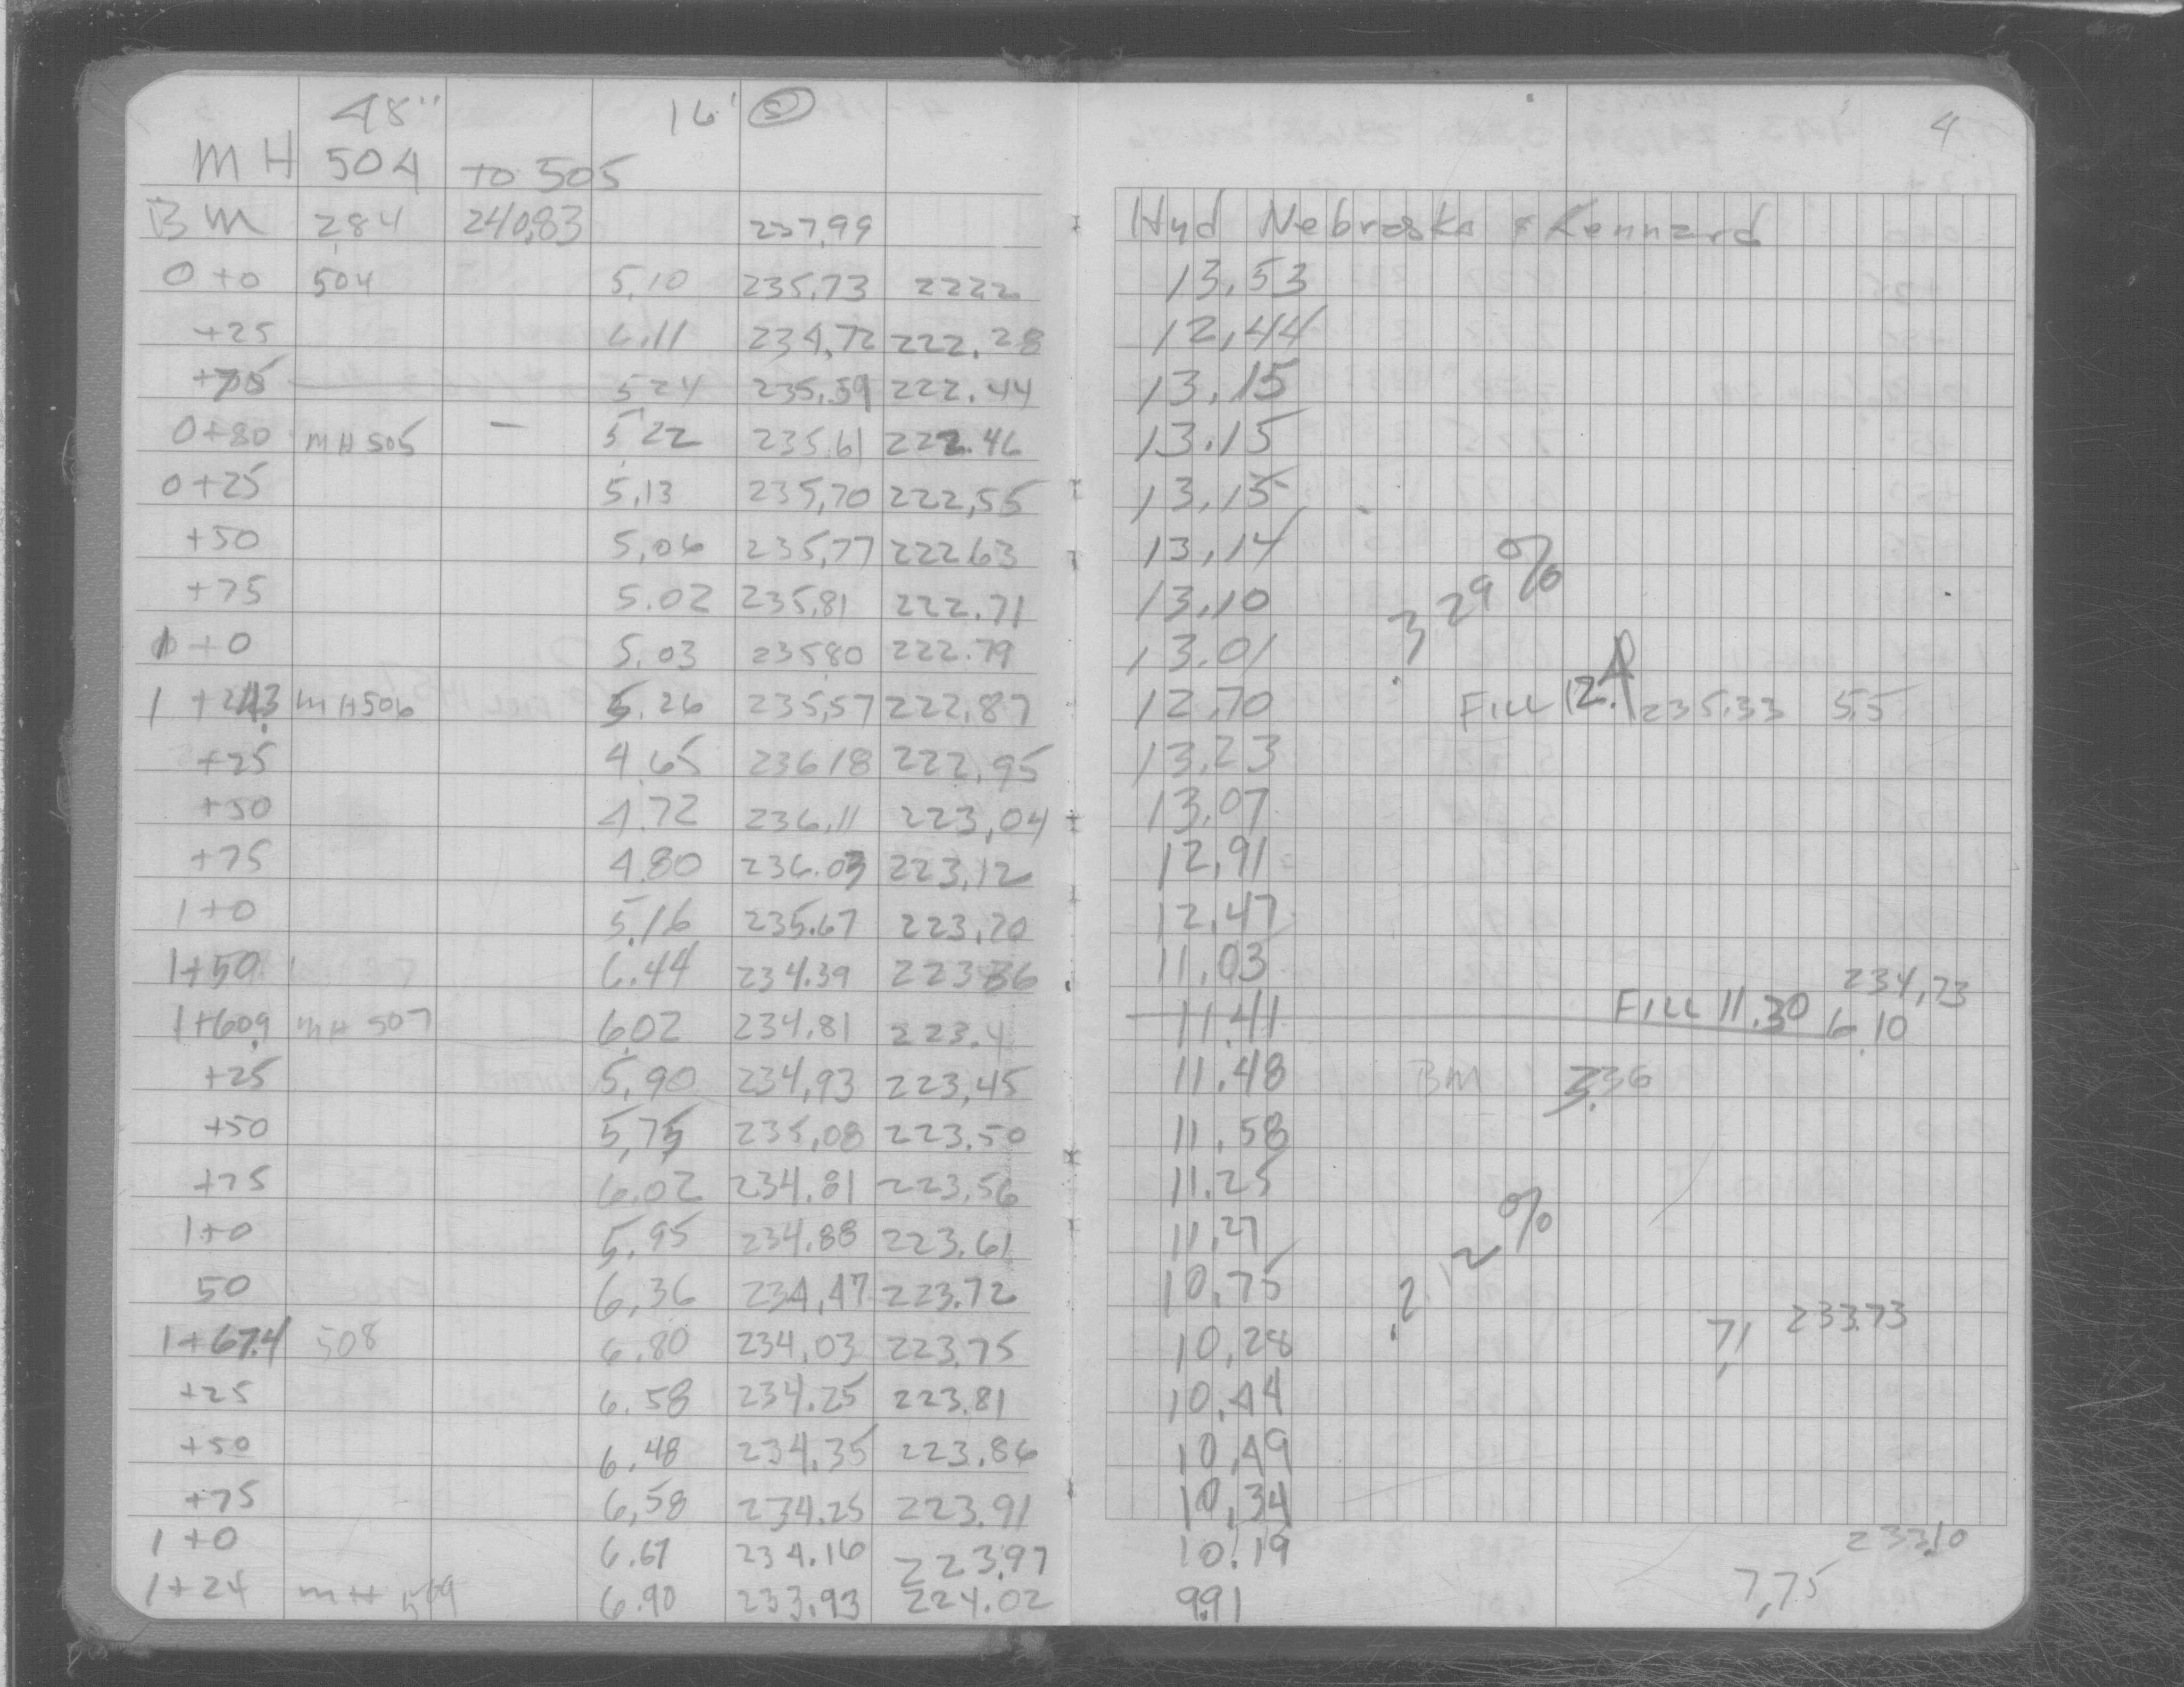 48" 16' S 4
MH 504 to 505
BM 2.84 240.83 237.99 Hyd Nebraska & Kennard
0+0 504 5.10 235.73 222.2 13.53
+25 6.11 234.72 222.28 12.44
+75 5.24 235.59 222.44 13.15
0+80 MH 505 - 5.22 235.61 222.46 13.15
0+25 5.13 235.70 222.55 13.15
+50 5.06 235.77 222.63 13.14
+75 5.02 235.81 222.71 13.10 .329%
1+0 5.03 235.80 222.79 13.01
1+24.3 MH 506 5.26 235.57 222.87 12.70 FILL 12.4 235.33 5.5
+25 4.65 236.18 222.95 13.23
+50 4.72 236.11 223.04 13.07
+75 4.80 236.03 223.12 12.91
1+0 5.16 235.67 223.20 12.47
1+50 6.44 234.39 223.36 11.03 234.73
1+60.9 MH 507 6.02 234.81 223.4 11.41 FILL 11.30 6.10
+25 5.90 234.93 223.45 11.48 BM 3.36
+50 5.75 235.08 223.50 11.58
+75 6.02 234.81 223.56 11.25
1+0 5.95 234.88 223.61 11.27 .212%
50 6.36 234.47 223.72 10.75
1+67.4 508 6.80 234.03 223.75 10.28 7.1 233.73
+25 6.58 234.25 223.81 10.44
+50 6.48 234.35 223.86 10.49
+75 6.58 234.25 223.91 10.34
1+0 6.67 234.16 223.97 10.19 233.10
1+24 MH 509 6.90 233.93 224.02 9.91 7.75